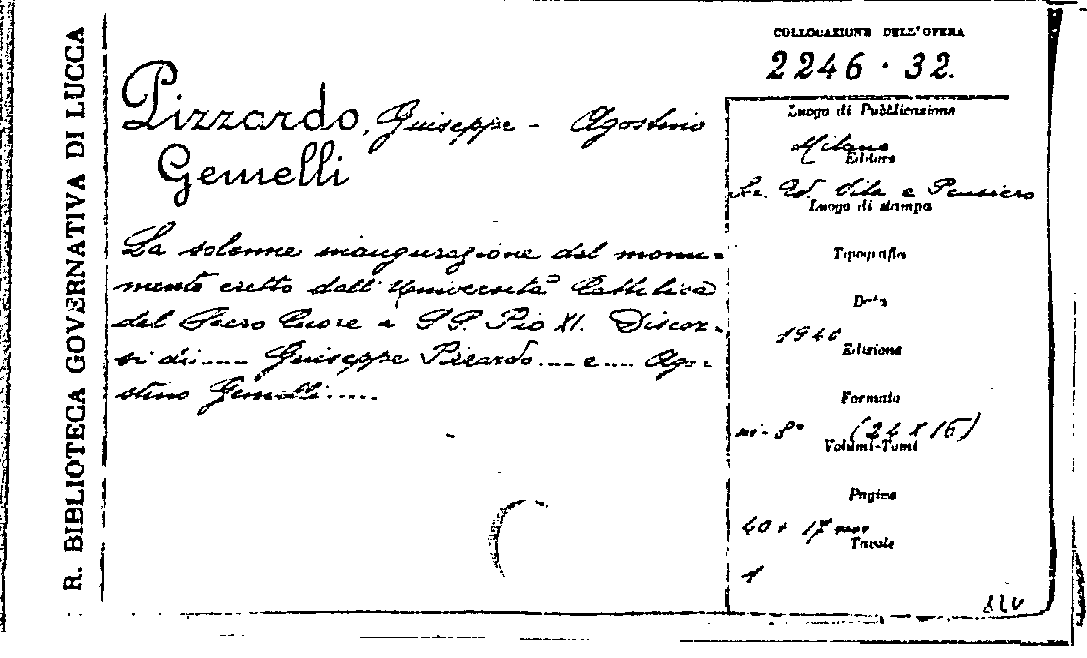 R. BIBLIOTECA GOVERNATIVA DI LUCCA
COLLOCAZIONE DELL'OPERA
2246 · 32.
Pizzardo, Giuseppe - Agostino
Gemelli
La solenne inaugurazione del monu=
mento eretto dall'Università Cattolica
del Sacro Cuore a S.S. Pio XI. Discor=
si di .... Giuseppe Pizzardo .... e .... Ago=
stino Gemelli .....
Luogo di Pubblicazione
Milano
Editore
Vita e Pensiero
Luogo di stampa
Tipografia
Data
1940
Edizione
Formato
in-8° (24 x 16)
Volumi-Tomi
Pagine
40 + 17
Tavole
1